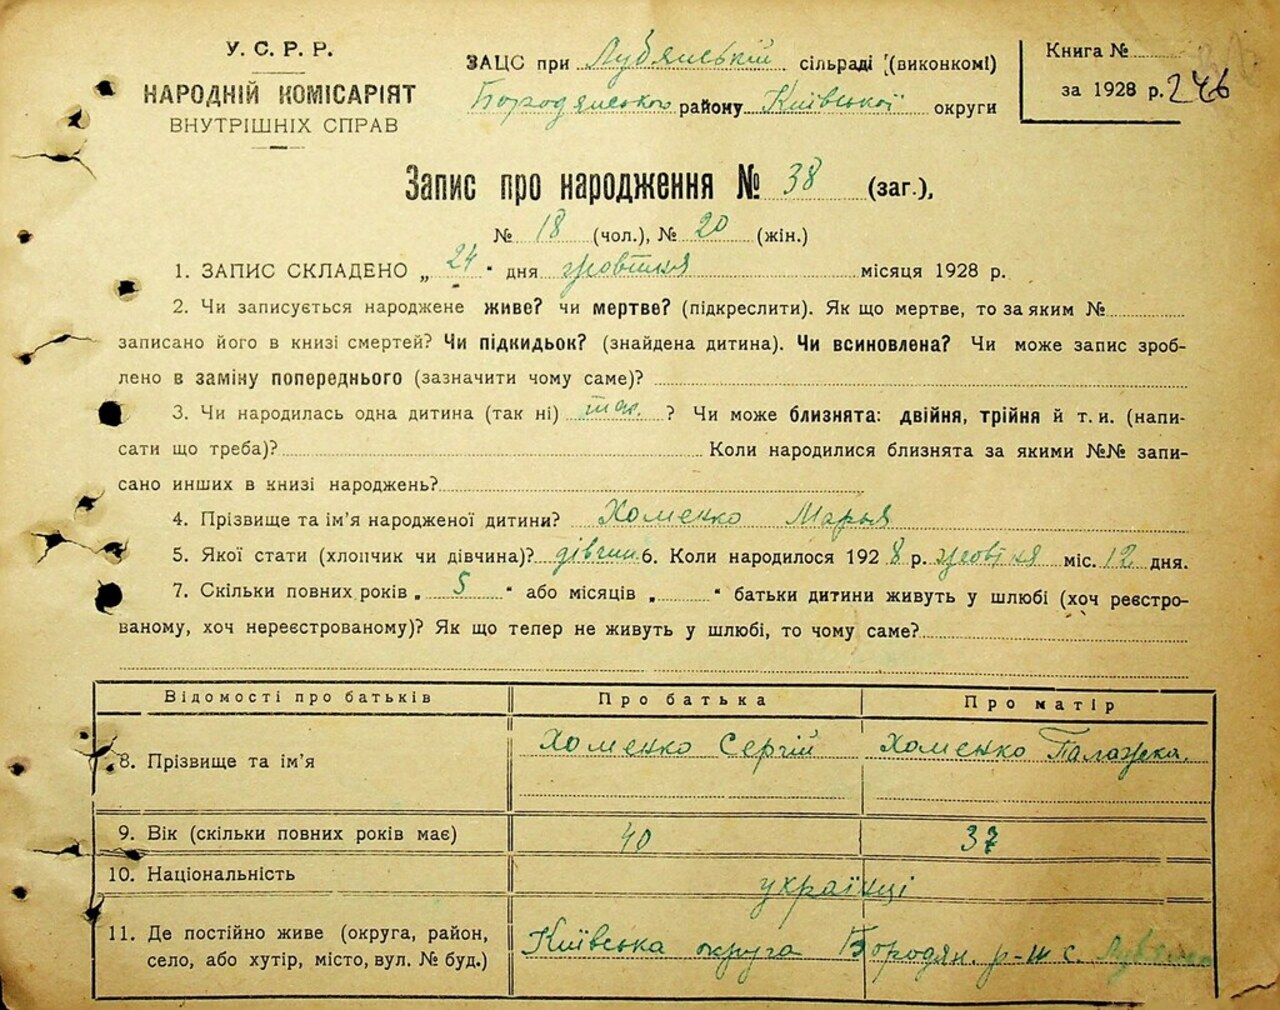 У. С. Р. Р.
НАРОДНІЙ КОМІСАРІЯТ
ВНУТРІШНІХ СПРАВ
ЗАЦС при Лубянській сільраді (виконкомі)
Бородянського району Київської округи
Книга №
за 1928 р. 246
Запис про народження № 38 (заг.),
№ 18 (чол.), № 20 (жін.)
1. ЗАПИС СКЛАДЕНО „ 24 “ дня жовтня місяця 1928 р.
2. Чи записується народжене живе? чи мертве? (підкреслити). Як що мертве, то за яким №
записано його в книзі смертей? Чи підкидьок? (знайдена дитина). Чи всиновлена? Чи може запис зроб-
лено в заміну попереднього (зазначити чому саме)?
3. Чи народилась одна дитина (так ні) так. ? Чи може близнята: двійня, трійня й т. и. (напи-
сати що треба)? Коли народилися близнята за якими №№ запи-
сано инших в книзі народжень?
4. Прізвище та ім’я народженої дитини? Хоменко Марья
5. Якої стати (хлопчик чи дівчина)? дівчин 6. Коли народилося 1928 р. жовтня міс. 12 дня.
7. Скільки повних років „ 5 “ або місяців „ “ батьки дитини живуть у шлюбі (хоч реєстро-
ваному, хоч нереєстрованому)? Як що тепер не живуть у шлюбі, то чому саме?
Відомості про батьків Про батька Про матір
8. Прізвище та ім’я Хоменко Сергій Хоменко Палажка.
9. Вік (скільки повних років має) 40 37
10. Національність українці
11. Де постійно живе (округа, район,
село, або хутір, місто, вул. № буд.) Київська округа Бородян. р-н с.